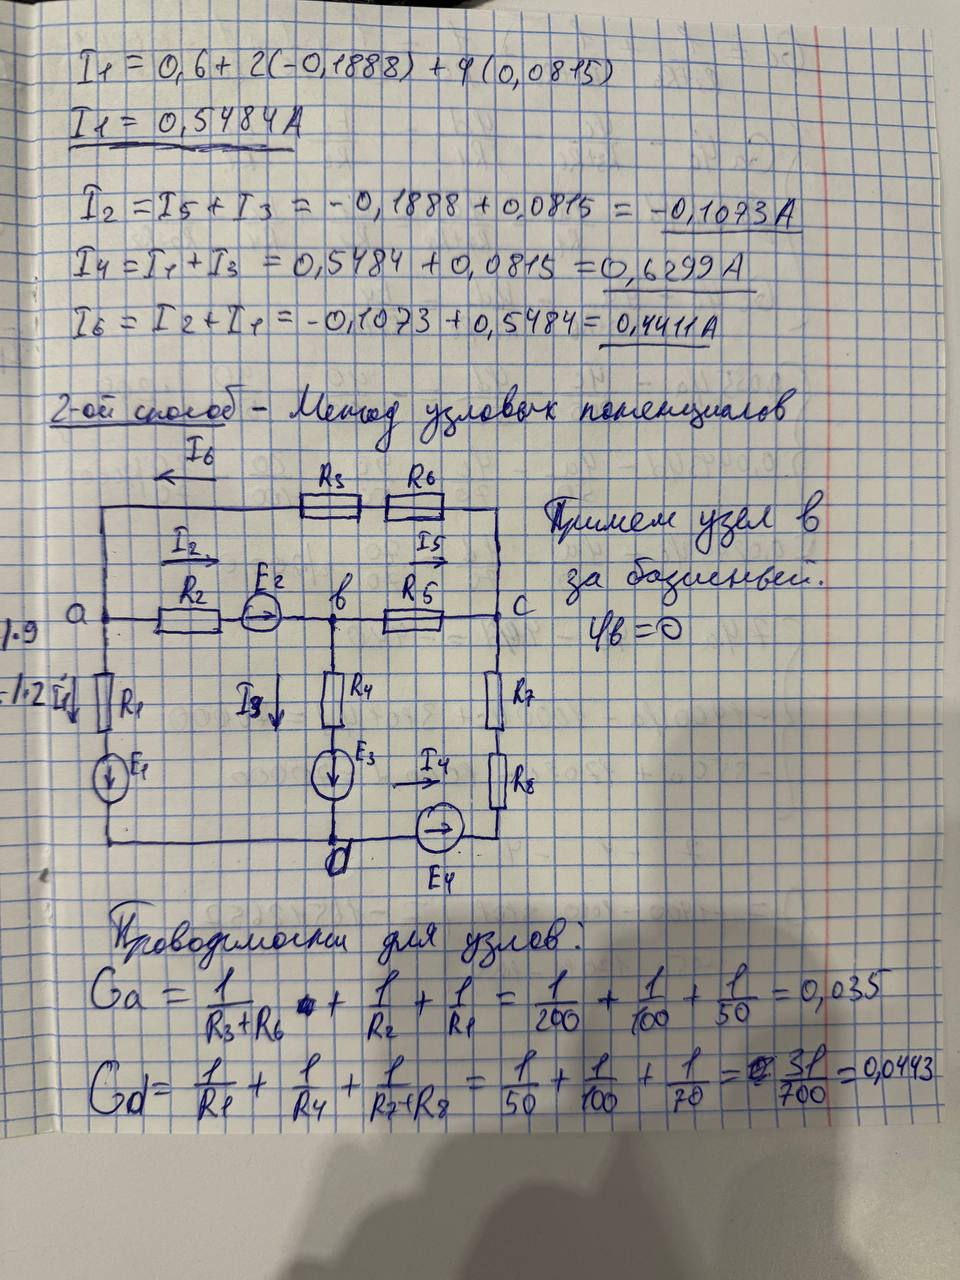 I1 = 0,6 + 2(-0,1888) + 4(0,0815)
I1 = 0,5484A
I2 = I5 + I3 = -0,1888 + 0,0815 = -0,1073A
I4 = I1 + I3 = 0,5484 + 0,0815 = 0,6299A
I6 = I2 + I1 = -0,1073 + 0,5484 = 0,4411A
2-ой способ - Метод узловых потенциалов
I6
R3 R6
Примем узел в
I2 I5
за базисный.
R2 E2 в R5
a c
φв = 0
I1 R1 I3 R4 R7
E1 E3 I4 R8
d
E4
Проводимости для узлов:
Ga = 1/(R3+R6) + 1/R2 + 1/R1 = 1/200 + 1/100 + 1/50 = 0,035
Gd = 1/R1 + 1/R4 + 1/(R7+R8) = 1/50 + 1/100 + 1/70 = 31/700 = 0,0443